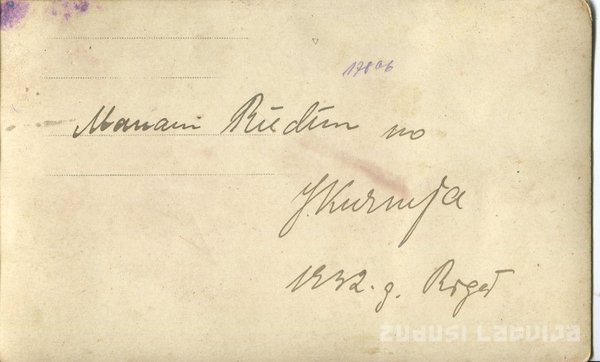 17806
Manam Rūdim no
J Kurmja
1932. g. Rīgā
ZUDUSI LATVIJA